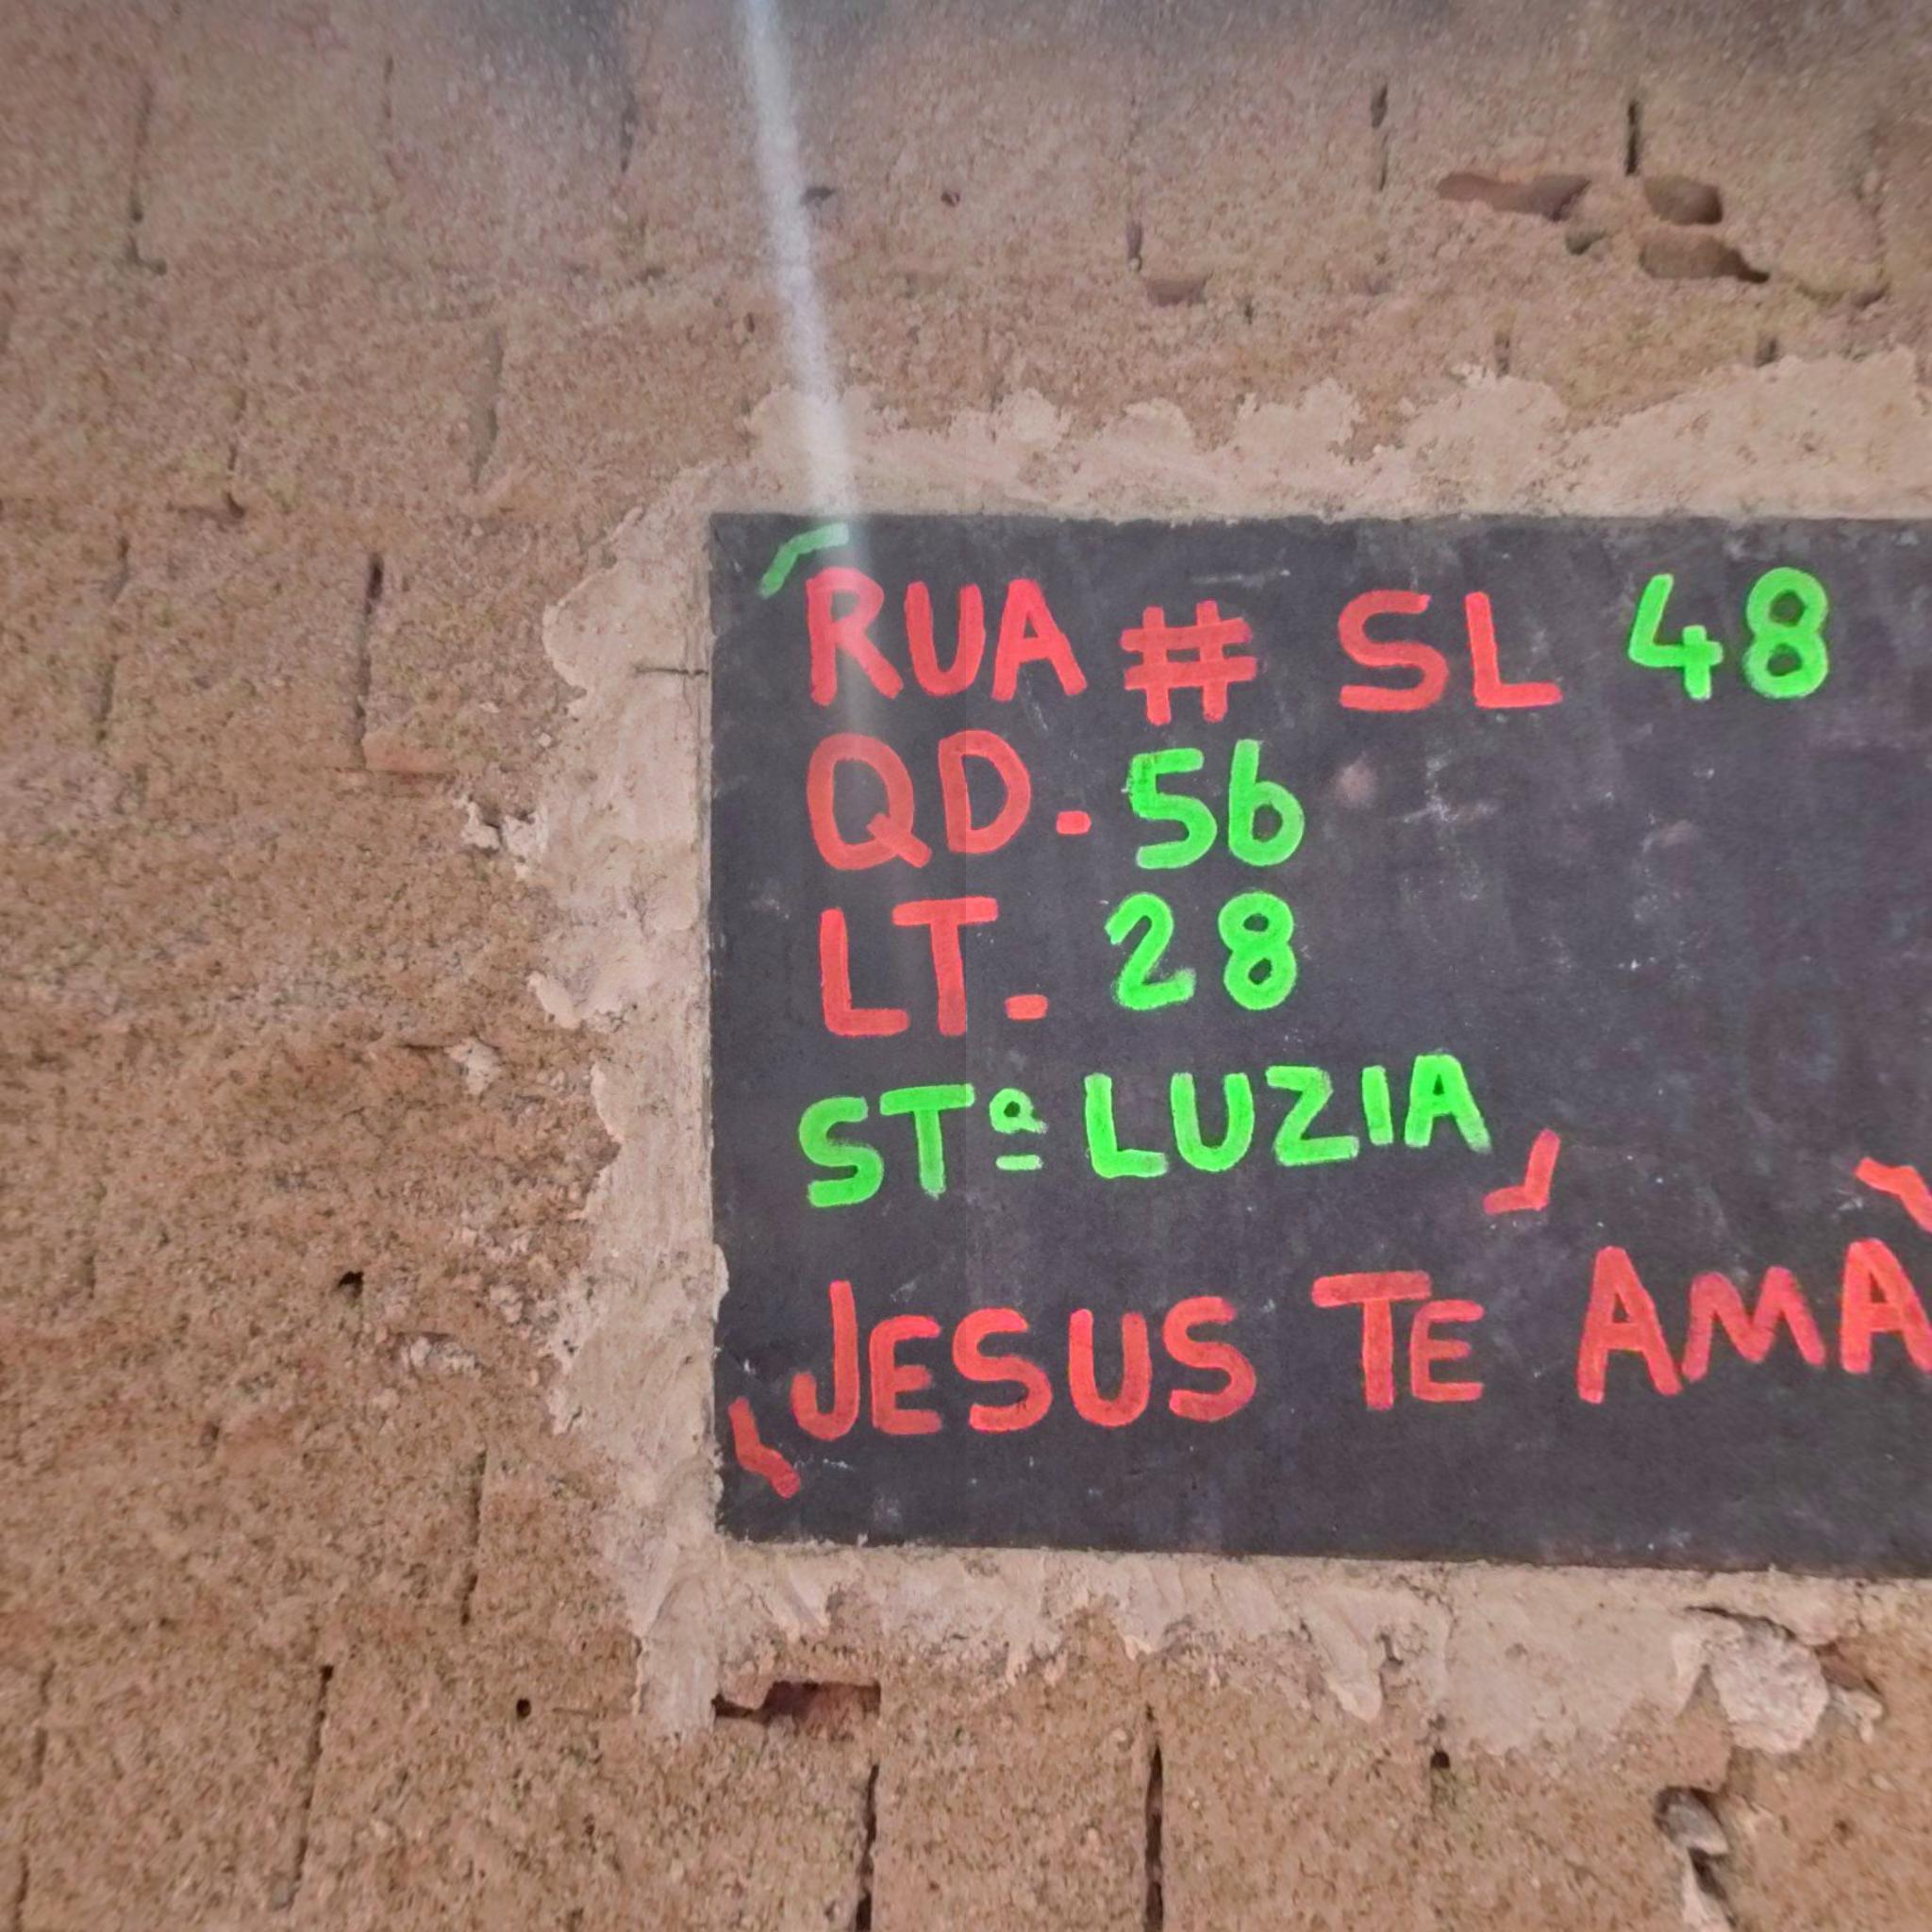 RUA # SL 48
QD. 56
LT. 28
STª LUZIA
JESUS TE AMA